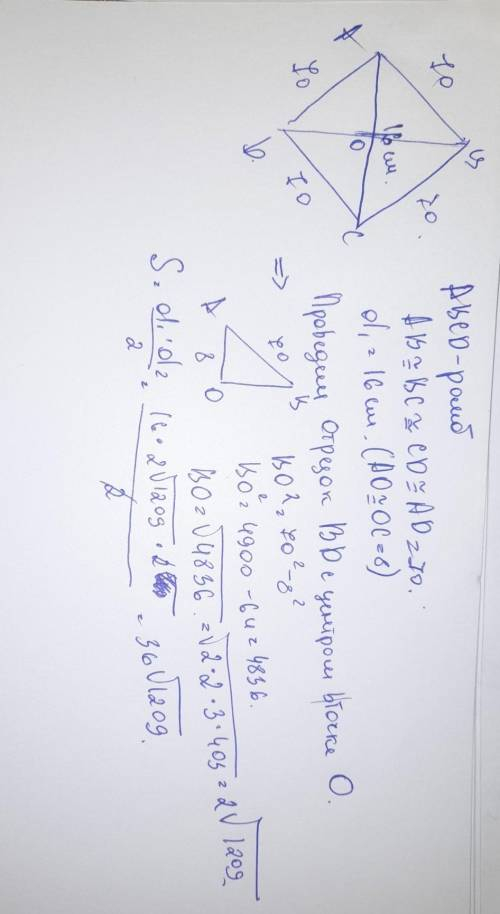 A
B
C
D
O
70
70
70
70
16 см.
ABCD - ромб
AB ≅ BC ≅ CD ≅ AD = 70.
d₁ = 16 см. (AO ≅ OC = 8)
Проведем отрезок BD с центром в точке O.
=>
A
B
O
70
8
BO² = 70² - 8²
BO² = 4900 - 64 = 4836.
BO = √4836 = √2·2·3·403 = 2√1209
S = d₁·d₂ / 2 = 16·2√1209 / 2 = 36√1209.